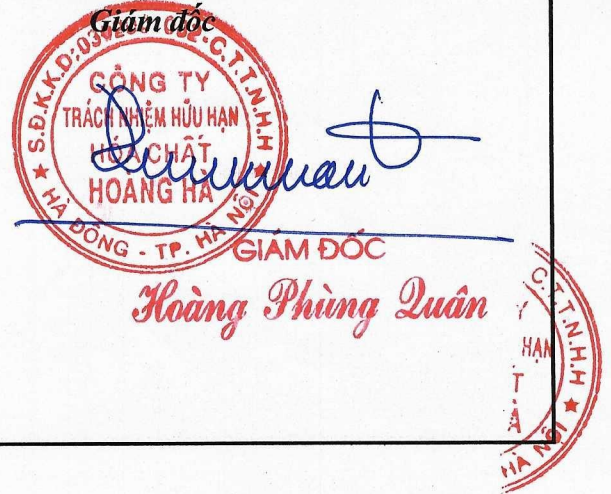 Giám đốc
S.Đ.K.K.D:
C.T.T.N.H.H
CÔNG TY
TRÁCH NHIỆM HỮU HẠN
HÓA CHẤT
HOÀNG HÀ
HÀ ĐÔNG - TP. HÀ NỘI
GIÁM ĐỐC
Hoàng Phùng Quân
C.T.T.N.H.H
HẠN
T
À
HÀ NỘI